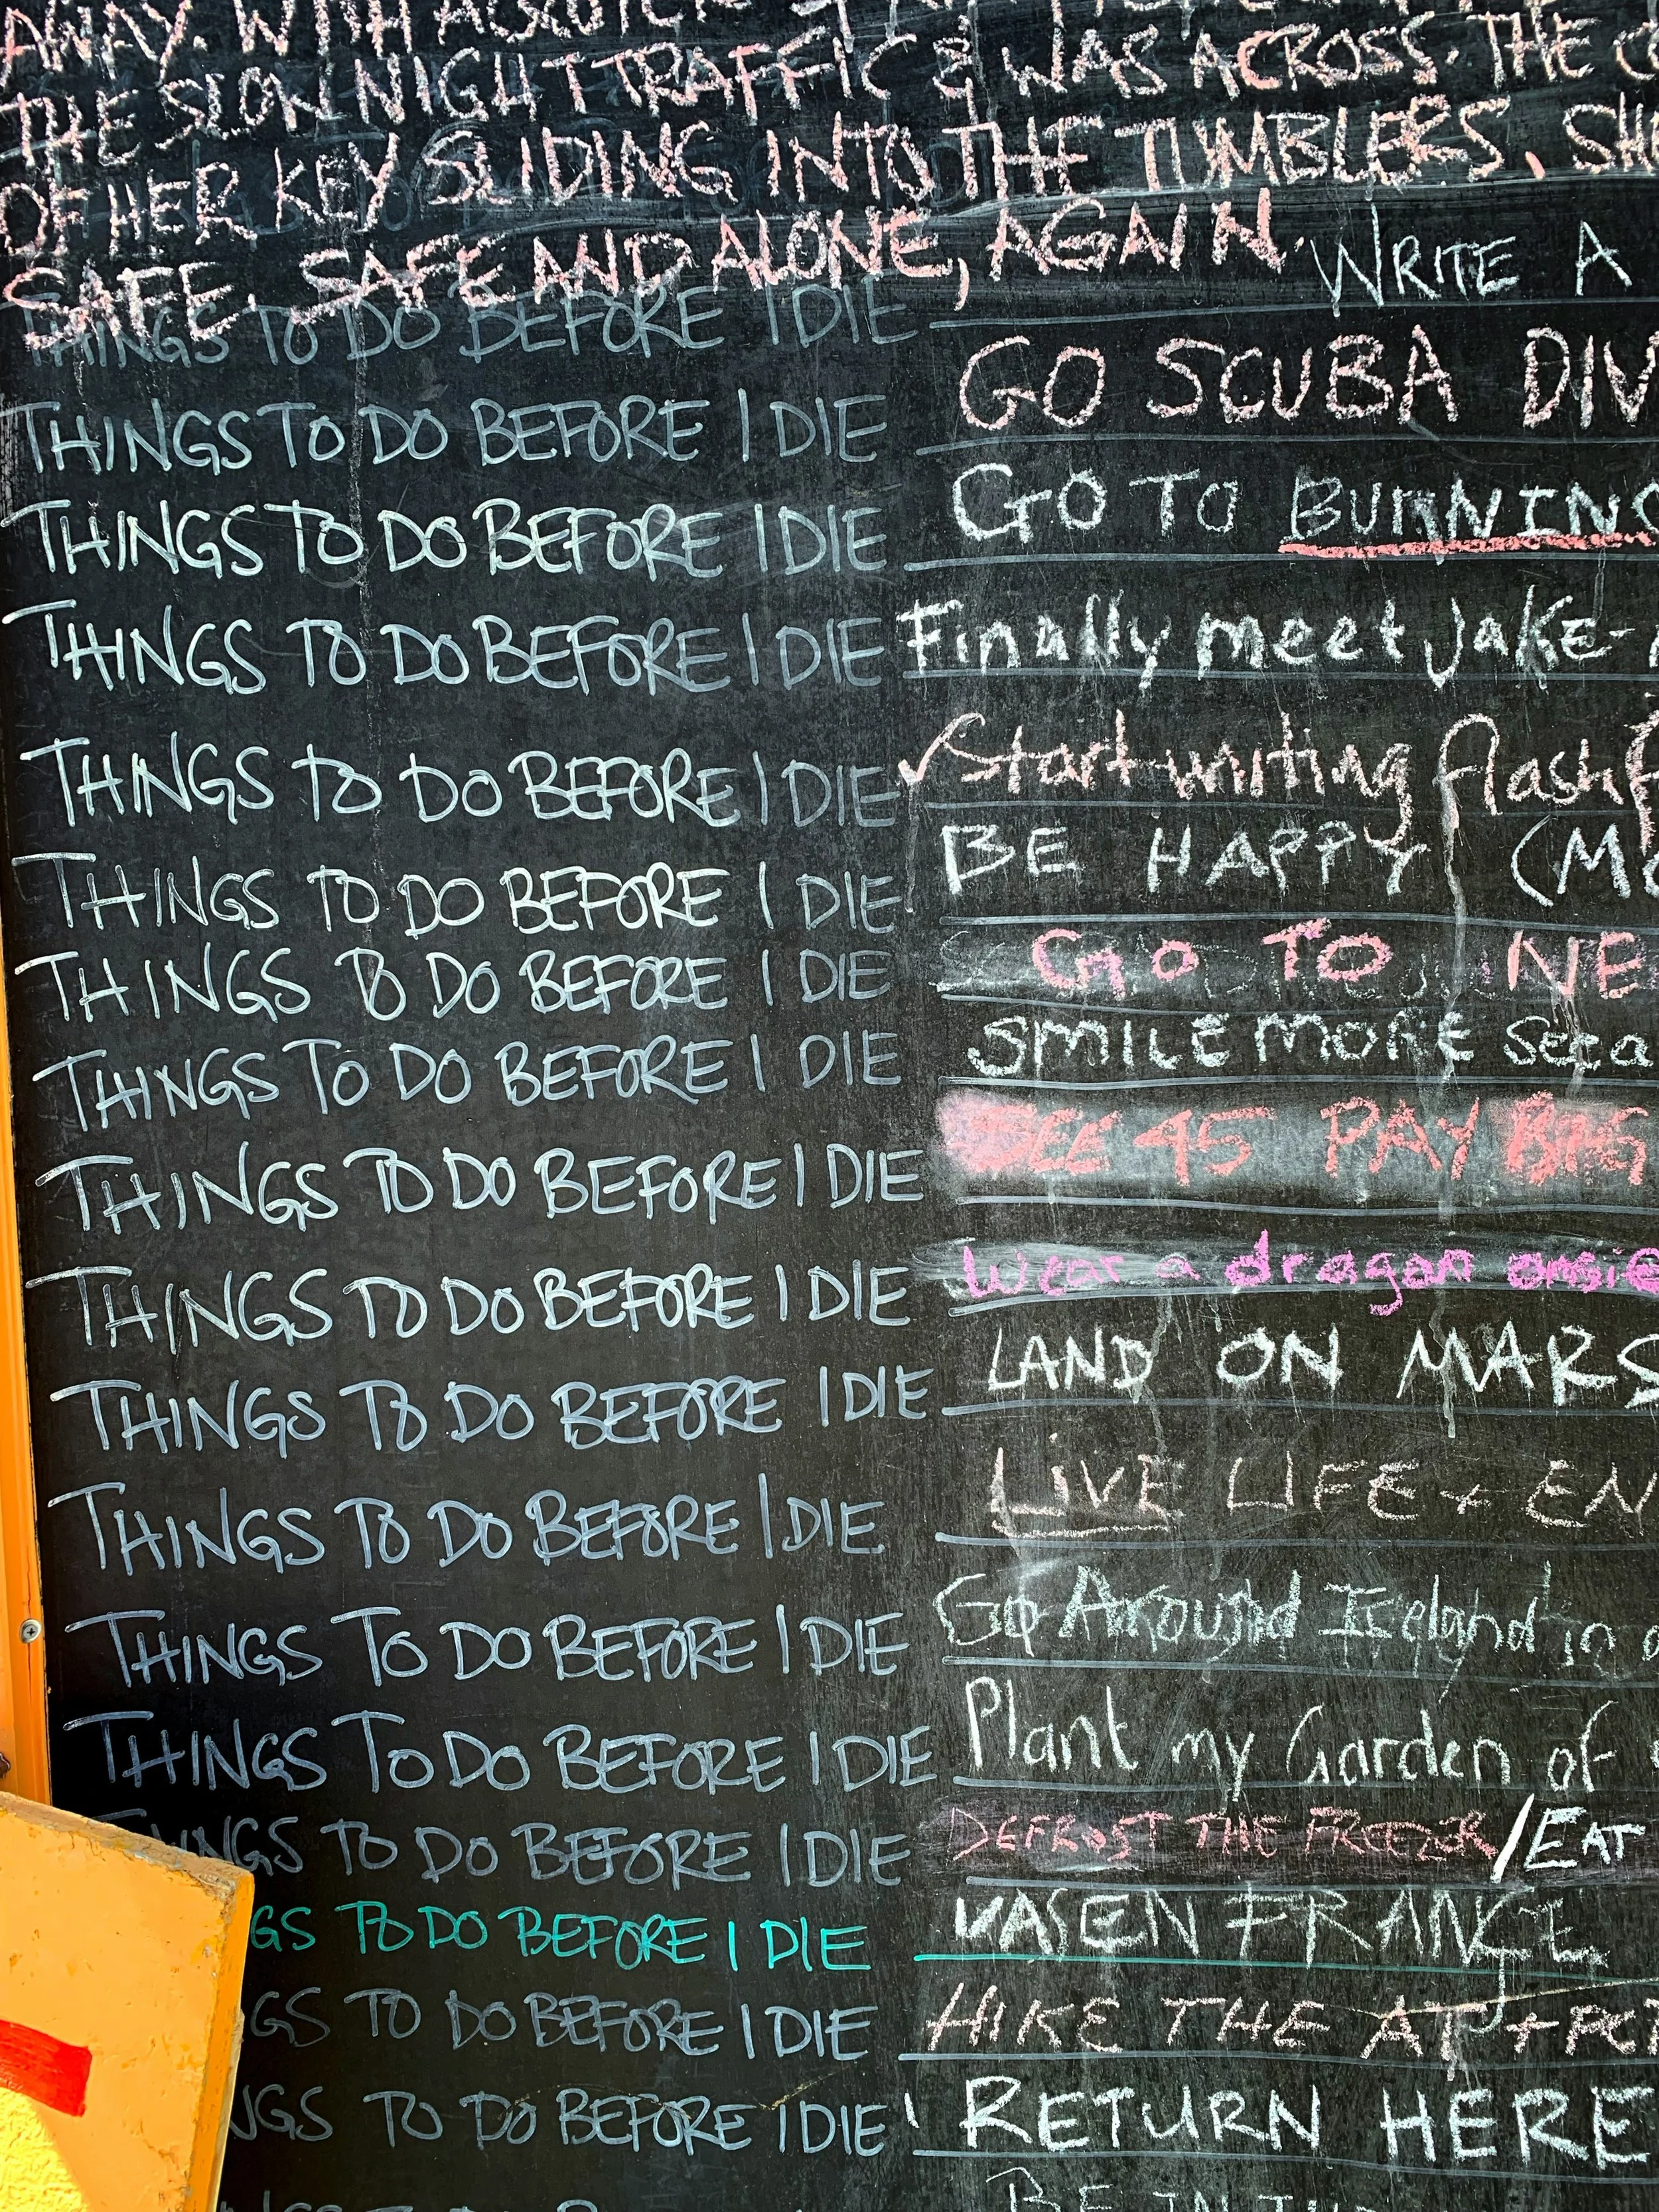 AWAY. WITH
THE SLOW NIGHT TRAFFIC & WAS ACROSS. THE
OF HER KEY SLIDING INTO THE TUMBLERS. SH
SAFE. SAFE AND ALONE, AGAIN.
THINGS TO DO BEFORE I DIE WRITE A
THINGS TO DO BEFORE I DIE GO SCUBA DIV
THINGS TO DO BEFORE I DIE GO TO BURNING
THINGS TO DO BEFORE I DIE Finally meet Jake-
THINGS TO DO BEFORE I DIE ✓Start writing flash f
THINGS TO DO BEFORE I DIE BE HAPPY (MO
THINGS TO DO BEFORE I DIE GO TO NE
THINGS TO DO BEFORE I DIE SMILE MORE
THINGS TO DO BEFORE I DIE SEE 45 PAY BIG
THINGS TO DO BEFORE I DIE Wear a dragon onsie
THINGS TO DO BEFORE I DIE LAND ON MARS
THINGS TO DO BEFORE I DIE LIVE LIFE + EN
THINGS TO DO BEFORE I DIE Go Around Iceland in a
THINGS TO DO BEFORE I DIE Plant my Garden of
THINGS TO DO BEFORE I DIE DEFROST THE FREEZER/EAT
GS TO DO BEFORE I DIE FRANCE
GS TO DO BEFORE I DIE HIKE THE AT + PCT
NGS TO DO BEFORE I DIE RETURN HERE
BE IN